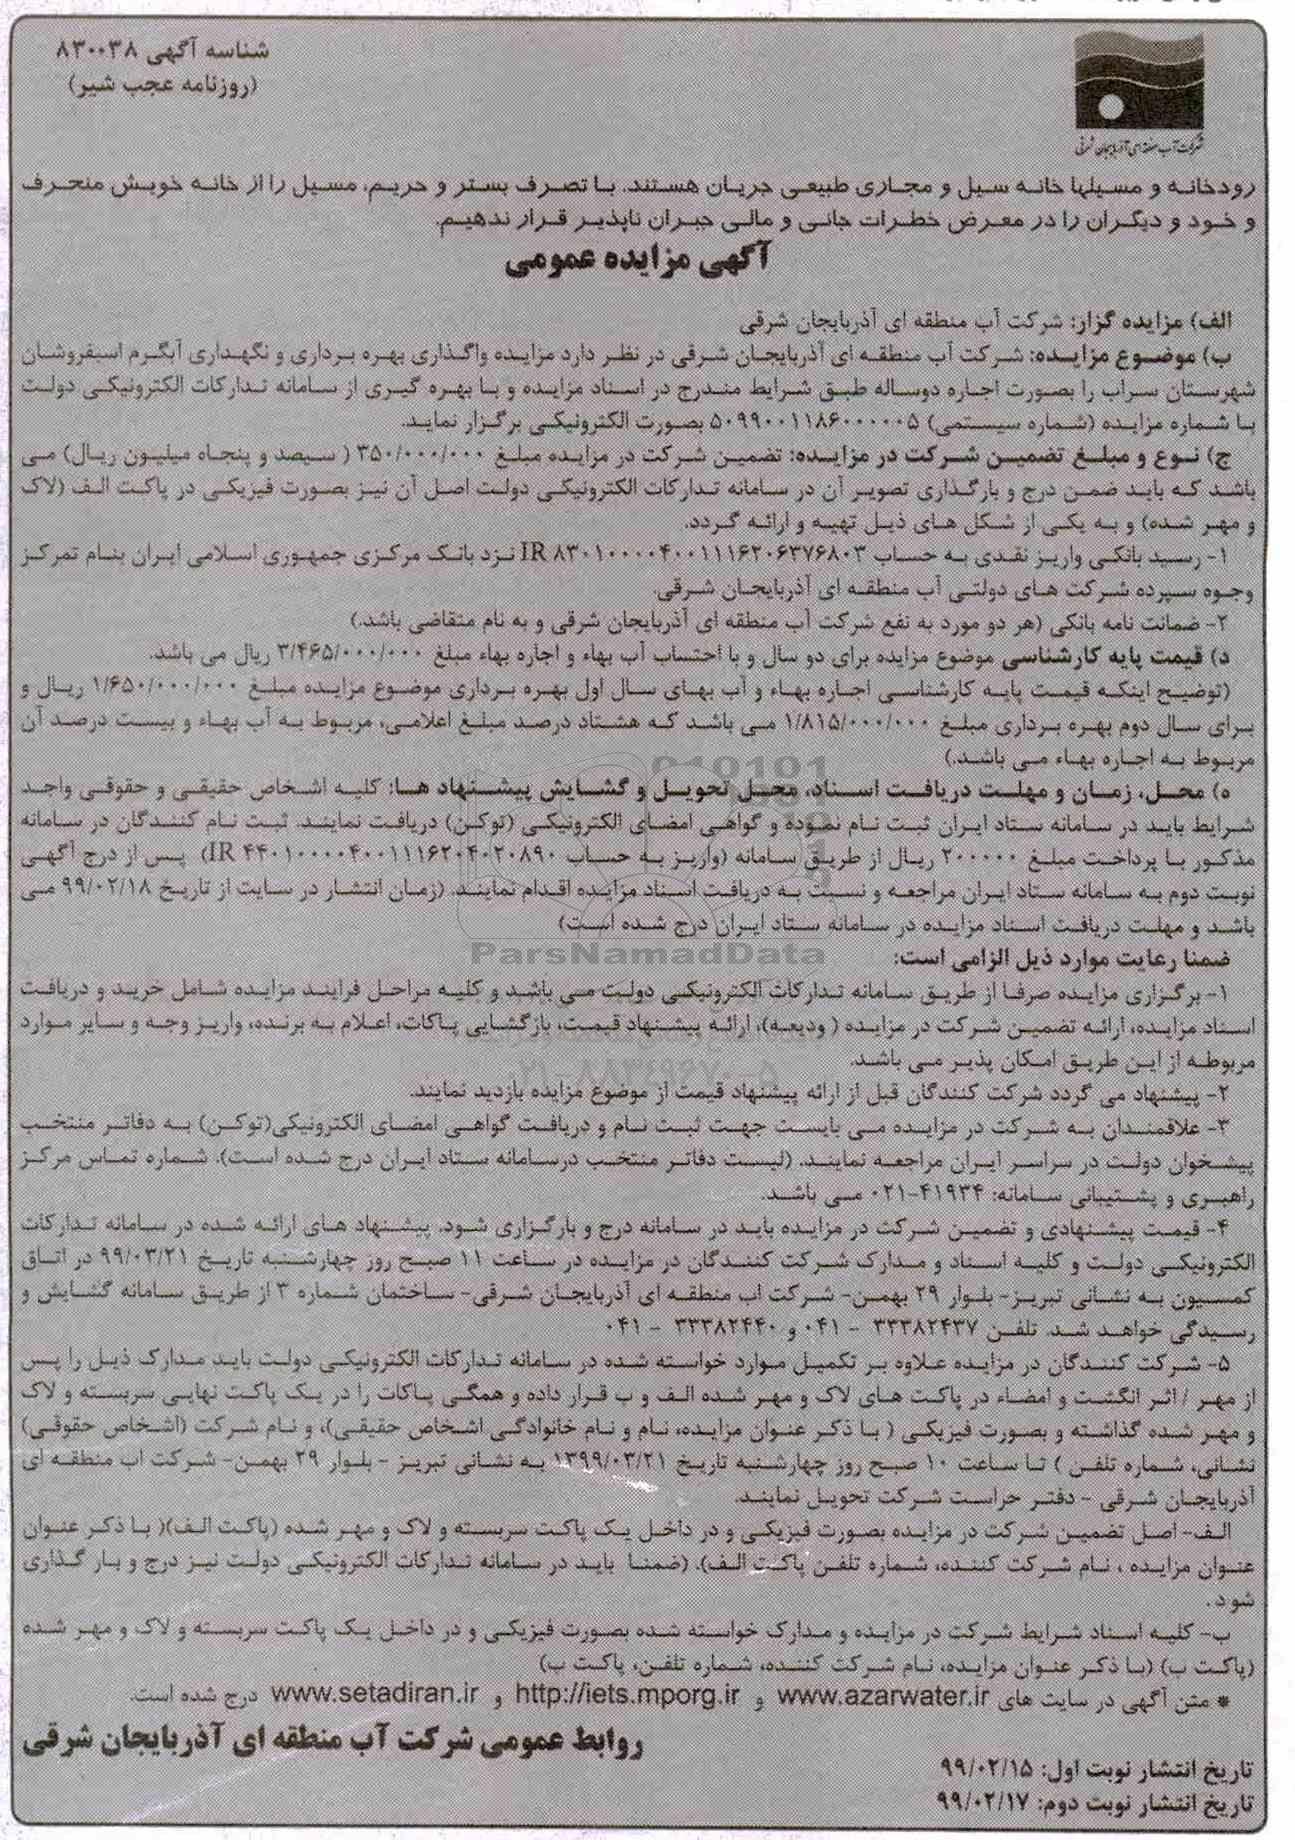 شناسه آگهی ۸۳۰۰۳۸
(روزنامه عجب شیر)
شرکت آب منطقه ای آذربایجان شرقی
رودخانه و مسیلها خانه سیل و مجاری طبیعی جریان هستند. با تصرف بستر و حریم، مسیل را از خانه خویش منحرف
و خود و دیگران را در معرض خطرات جانی و مالی جبران ناپذیر قرار ندهیم.
آگهی مزایده عمومی
الف) مزایده گزار: شرکت آب منطقه ای آذربایجان شرقی
ب) موضوع مزایده: شرکت آب منطقه ای آذربایجان شرقی در نظر دارد مزایده واگذاری بهره برداری و نگهداری آبگرم اسبفروشان
شهرستان سراب را بصورت اجاره دوساله طبق شرایط مندرج در اسناد مزایده و با بهره گیری از سامانه تدارکات الکترونیکی دولت
با شماره مزایده (شماره سیستمی) ۵۰۹۹۰۰۱۱۸۶۰۰۰۰۰۵ بصورت الکترونیکی برگزار نماید.
ج) نوع و مبلغ تضمین شرکت در مزایده: تضمین شرکت در مزایده مبلغ ۳۵۰/۰۰۰/۰۰۰ ( سیصد و پنجاه میلیون ریال) می
باشد که باید ضمن درج و بارگذاری تصویر آن در سامانه تدارکات الکترونیکی دولت اصل آن نیز بصورت فیزیکی در پاکت الف (لاک
و مهر شده) و به یکی از شکل های ذیل تهیه و ارائه گردد.
۱- رسید بانکی واریز نقدی به حساب IR ۸۳۰۱۰۰۰۰۴۰۰۱۱۱۶۲۰۶۳۷۶۸۰۳ نزد بانک مرکزی جمهوری اسلامی ایران بنام تمرکز
وجوه سپرده شرکت های دولتی آب منطقه ای آذربایجان شرقی.
۲- ضمانت نامه بانکی (هر دو مورد به نفع شرکت آب منطقه ای آذربایجان شرقی و به نام متقاضی باشد.)
د) قیمت پایه کارشناسی موضوع مزایده برای دو سال و با احتساب آب بهاء و اجاره بهاء مبلغ ۳/۴۶۵/۰۰۰/۰۰۰ ریال می باشد.
(توضیح اینکه قیمت پایه کارشناسی اجاره بهاء و آب بهای سال اول بهره برداری موضوع مزایده مبلغ ۱/۶۵۰/۰۰۰/۰۰۰ ریال و
برای سال دوم بهره برداری مبلغ ۱/۸۱۵/۰۰۰/۰۰۰ می باشد که هشتاد درصد مبلغ اعلامی، مربوط به آب بهاء و بیست درصد آن
مربوط به اجاره بهاء می باشد.)
ه) محل، زمان و مهلت دریافت اسناد، محل تحویل و گشایش پیشنهاد ها: کلیه اشخاص حقیقی و حقوقی واجد
شرایط باید در سامانه ستاد ایران ثبت نام نموده و گواهی امضای الکترونیکی (توکن) دریافت نمایند. ثبت نام کنندگان در سامانه
مذکور با پرداخت مبلغ ۲۰۰۰۰۰ ریال از طریق سامانه (واریز به حساب IR ۴۴۰۱۰۰۰۰۴۰۰۱۱۱۶۲۰۴۰۲۰۸۹۰) پس از درج آگهی
نوبت دوم به سامانه ستاد ایران مراجعه و نسبت به دریافت اسناد مزایده اقدام نمایند. (زمان انتشار در سایت از تاریخ ۹۹/۰۲/۱۸ می
باشد و مهلت دریافت اسناد مزایده در سامانه ستاد ایران درج شده است)
ParsNamadData
ضمنا رعایت موارد ذیل الزامی است:
۱- برگزاری مزایده صرفا از طریق سامانه تدارکات الکترونیکی دولت می باشد و کلیه مراحل فرایند مزایده شامل خرید و دریافت
اسناد مزایده، ارائه تضمین شرکت در مزایده ( ودیعه)، ارائه پیشنهاد قیمت، بازگشایی پاکات، اعلام به برنده، واریز وجه و سایر موارد
مربوطه از این طریق امکان پذیر می باشد.
۰۲۱-۸۸۳۴۹۶۷۰-۵
۲- پیشنهاد می گردد شرکت کنندگان قبل از ارائه پیشنهاد قیمت از موضوع مزایده بازدید نمایند.
۳- علاقمندان به شرکت در مزایده می بایست جهت ثبت نام و دریافت گواهی امضای الکترونیکی(توکن) به دفاتر منتخب
پیشخوان دولت در سراسر ایران مراجعه نمایند. (لیست دفاتر منتخب درسامانه ستاد ایران درج شده است). شماره تماس مرکز
راهبری و پشتیبانی سامانه: ۴۱۹۳۴-۰۲۱ می باشد.
۴- قیمت پیشنهادی و تضمین شرکت در مزایده باید در سامانه درج و بارگزاری شود. پیشنهاد های ارائه شده در سامانه تدارکات
الکترونیکی دولت و کلیه اسناد و مدارک شرکت کنندگان در مزایده در ساعت ۱۱ صبح روز چهارشنبه تاریخ ۹۹/۰۳/۲۱ در اتاق
کمسیون به نشانی تبریز- بلوار ۲۹ بهمن- شرکت اب منطقه ای آذربایجان شرقی- ساختمان شماره ۳ از طریق سامانه گشایش و
رسیدگی خواهد شد. تلفن ۳۳۳۸۲۴۳۷ - ۰۴۱ و ۳۳۳۸۲۴۴۰ - ۰۴۱
۵- شرکت کنندگان در مزایده علاوه بر تکمیل موارد خواسته شده در سامانه تدارکات الکترونیکی دولت باید مدارک ذیل را پس
از مهر / اثر انگشت و امضاء در پاکت های لاک و مهر شده الف و ب قرار داده و همگی پاکات را در یک پاکت نهایی سربسته و لاک
و مهر شده گذاشته و بصورت فیزیکی ( با ذکر عنوان مزایده، نام و نام خانوادگی اشخاص حقیقی)، و نام شرکت (اشخاص حقوقی)
نشانی، شماره تلفن ) تا ساعت ۱۰ صبح روز چهارشنبه تاریخ ۱۳۹۹/۰۳/۲۱ به نشانی تبریز - بلوار ۲۹ بهمن- شرکت اب منطقه ای
آذربایجان شرقی - دفتر حراست شرکت تحویل نمایند.
الف- اصل تضمین شرکت در مزایده بصورت فیزیکی و در داخل یک پاکت سربسته و لاک و مهر شده (پاکت الف)( با ذکر عنوان
عنوان مزایده ، نام شرکت کننده، شماره تلفن پاکت الف). (ضمنا باید در سامانه تدارکات الکترونیکی دولت نیز درج و بار گذاری
شود.
ب- کلیه اسناد شرایط شرکت در مزایده و مدارک خواسته شده بصورت فیزیکی و در داخل یک پاکت سربسته و لاک و مهر شده
(پاکت ب) (با ذکر عنوان مزایده، نام شرکت کننده، شماره تلفن، پاکت ب)
* متن آگهی در سایت های www.azarwater.ir و http://iets.mporg.ir و www.setadiran.ir درج شده است.
روابط عمومی شرکت آب منطقه ای آذربایجان شرقی
تاریخ انتشار نوبت اول: ۹۹/۰۲/۱۵
تاریخ انتشار نوبت دوم: ۹۹/۰۲/۱۷